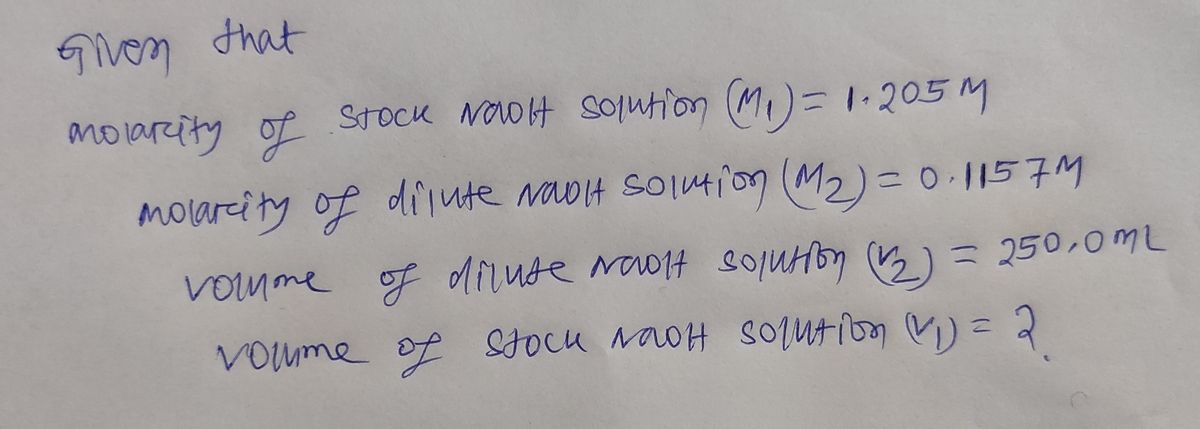 Given that
molarity of stock NaOH solution (M₁) = 1.205 M
molarity of dilute NaOH solution (M₂) = 0.1157 M
volume of dilute NaOH solution (V₂) = 250.0 mL
volume of stock NaOH solution (V₁) = ?